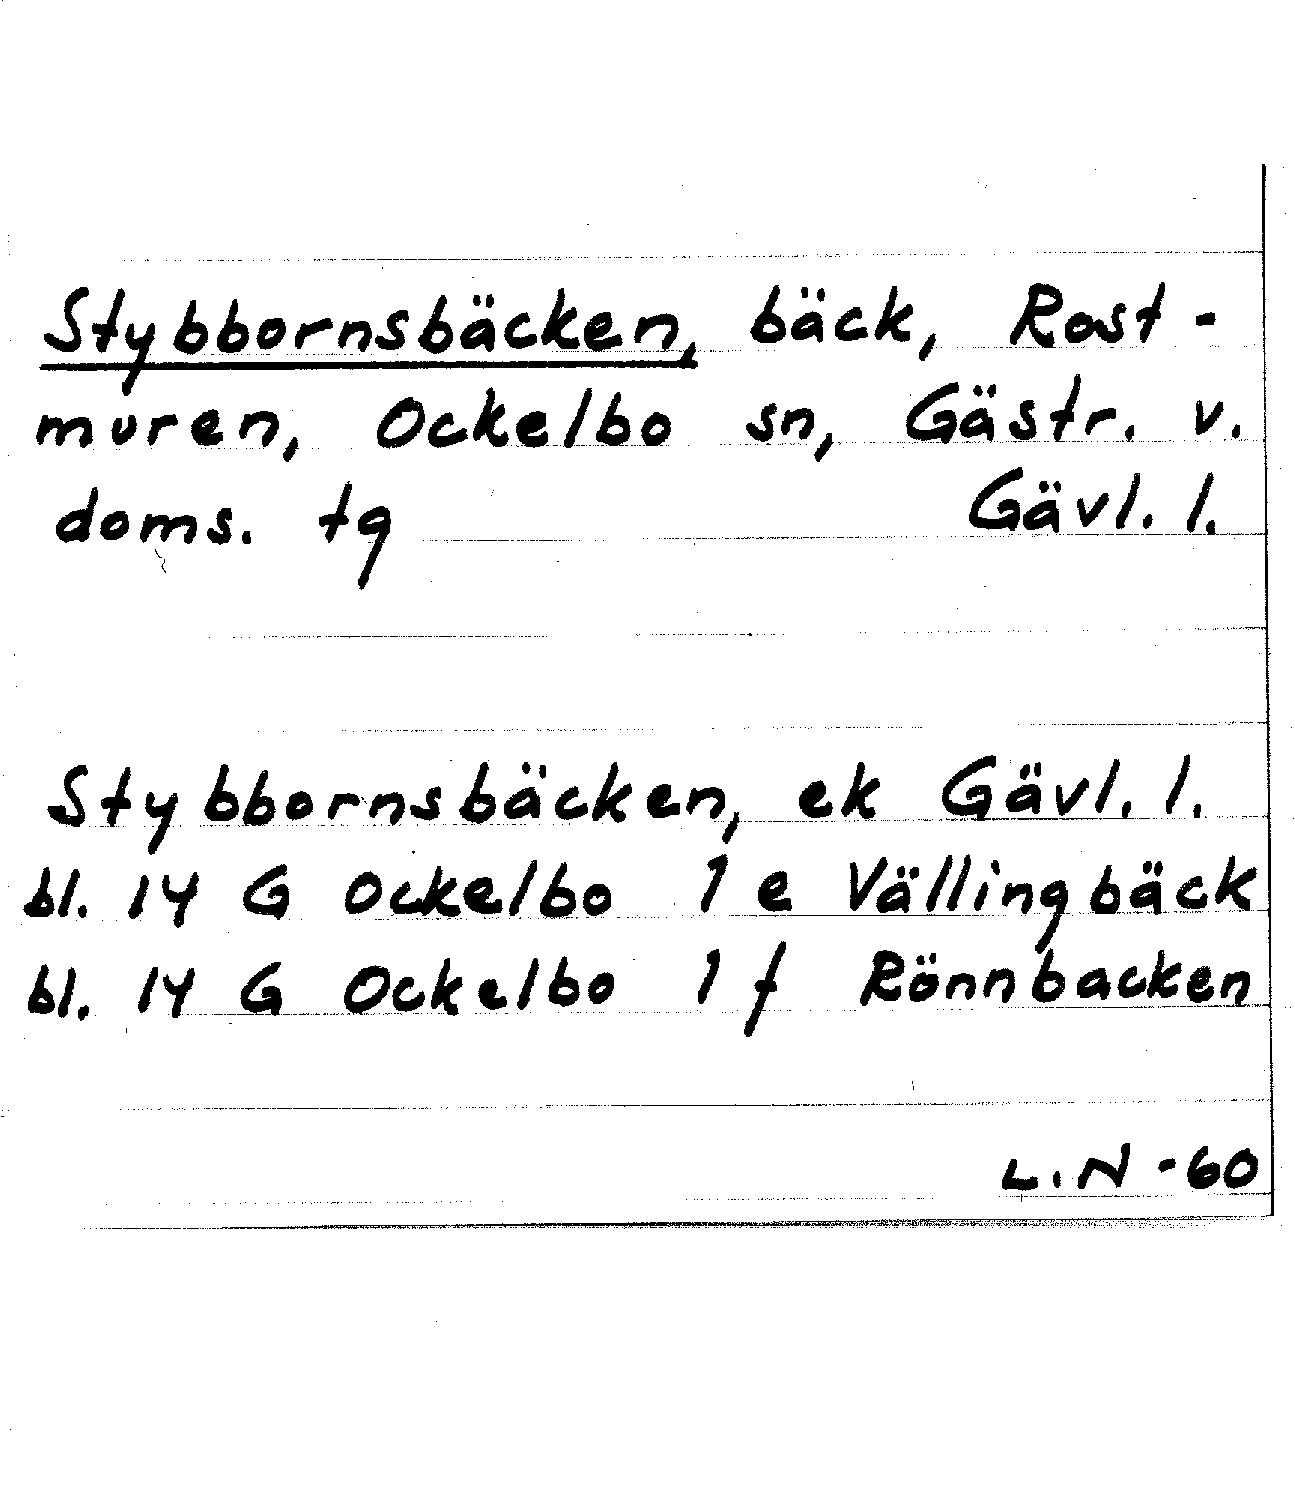 Stybbornsbäcken, bäck, Rost-
muren, Ockelbo sn, Gästr. v.
doms. tg Gävl. l.
Stybbornsbäcken, ek Gävl. l.
bl. 14 G Ockelbo 1 e Vällingbäck
bl. 14 G Ockelbo 1 f Rönnbacken
L.N -60